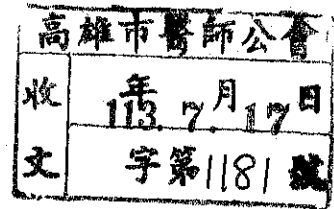 高雄市醫師公會
收文
年月日
113. 7. 17
字第1181號